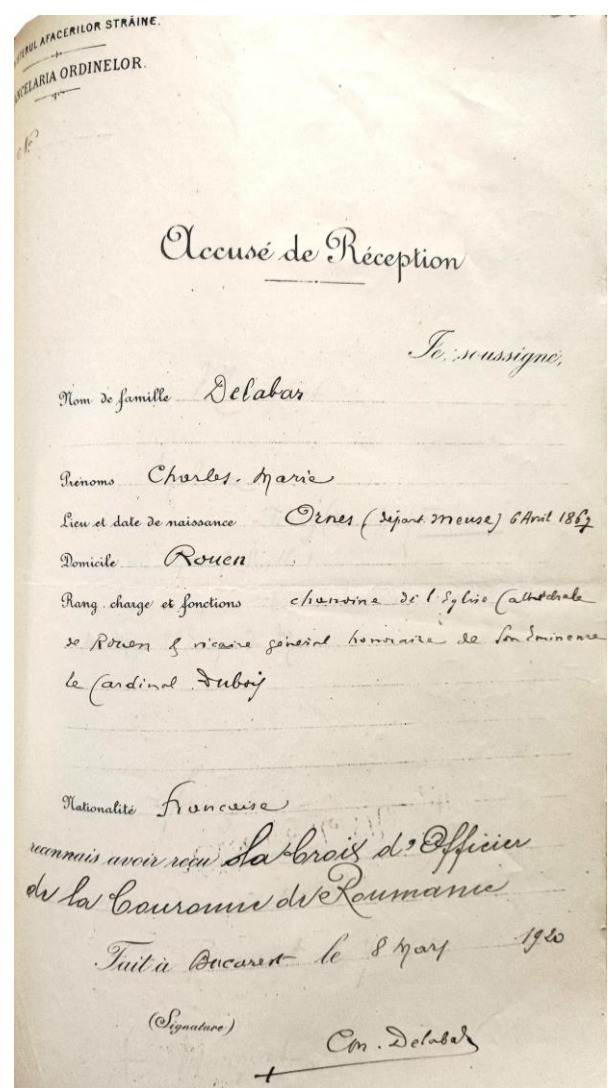 MINISTERUL AFACERILOR STRĂINE.
CANCELARIA ORDINELOR.
No
Accusé de Réception
Je, soussigné,
Nom de famille Delabar
Prénoms Charles-Marie
Lieu et date de naissance Ornes (départ. Meuse) 6 Avril 1867
Domicile Rouen
Rang, charge et fonctions chanoine de l'Eglise Cathédrale
de Rouen & vicaire général honoraire de Son Eminence
le Cardinal Dubois
Nationalité française
reconnais avoir reçu La Croix d'Officier
de la Couronne de Roumanie
Fait à Bucarest le 8 Mars 1920
(Signature)
Ch. Delabar